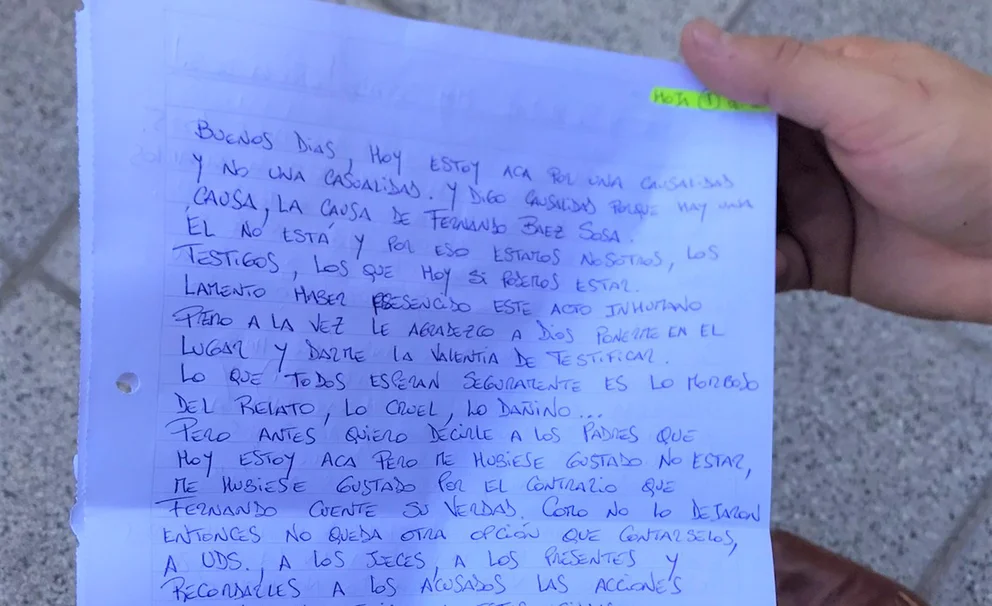 HOJA 1
BUENOS DIAS, HOY ESTOY ACA POR UNA CAUSALIDAD
Y NO UNA CASUALIDAD. Y DIGO CAUSALIDAD PORQUE HAY UNA
CAUSA, LA CAUSA DE FERNANDO BAEZ SOSA.
EL NO ESTÁ Y POR ESO ESTAMOS NOSOTROS, LOS
TESTIGOS, LOS QUE HOY SI PODEMOS ESTAR.
LAMENTO HABER PRESENCIDO ESTE ACTO INHUMANO
PERO A LA VEZ LE AGRADEZCO A DIOS PONERME EN EL
LUGAR Y DARME LA VALENTIA DE TESTIFICAR.
LO QUE TODOS ESPERAN SEGURAMENTE ES LO MORBOSO
DEL RELATO, LO CRUEL, LO DAÑINO...
PERO ANTES QUIERO DECIRLE A LOS PADRES QUE
HOY ESTOY ACA PERO ME HUBIESE GUSTADO NO ESTAR,
ME HUBIESE GUSTADO POR EL CONTRARIO QUE
FERNANDO CUENTE SU VERDAD. COMO NO LO DEJARON
ENTONCES NO QUEDA OTRA OPCIÓN QUE CONTARSELOS,
A UDS., A LOS JUECES, A LOS PRESENTES Y
RECORDARLES A LOS ACUSADOS LAS ACCIONES